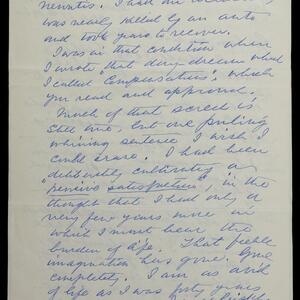 neuritis. I had an accident
was nearly killed by an auto
and took years to recover.
I was in that condition when
I wrote that day dream which
I called "Compensations", which
you read and approved.
Much of that screed is
one, but one puling
whining sentence I wish I
could erase. I had been
deliberately cultivating a
"pensive satisfaction", in the
thought that I had only a
very few years more in
which I must bear the
burden of life. That feeble
imagination has gone. Gone
completely. I am as avid
of life as I was forty years